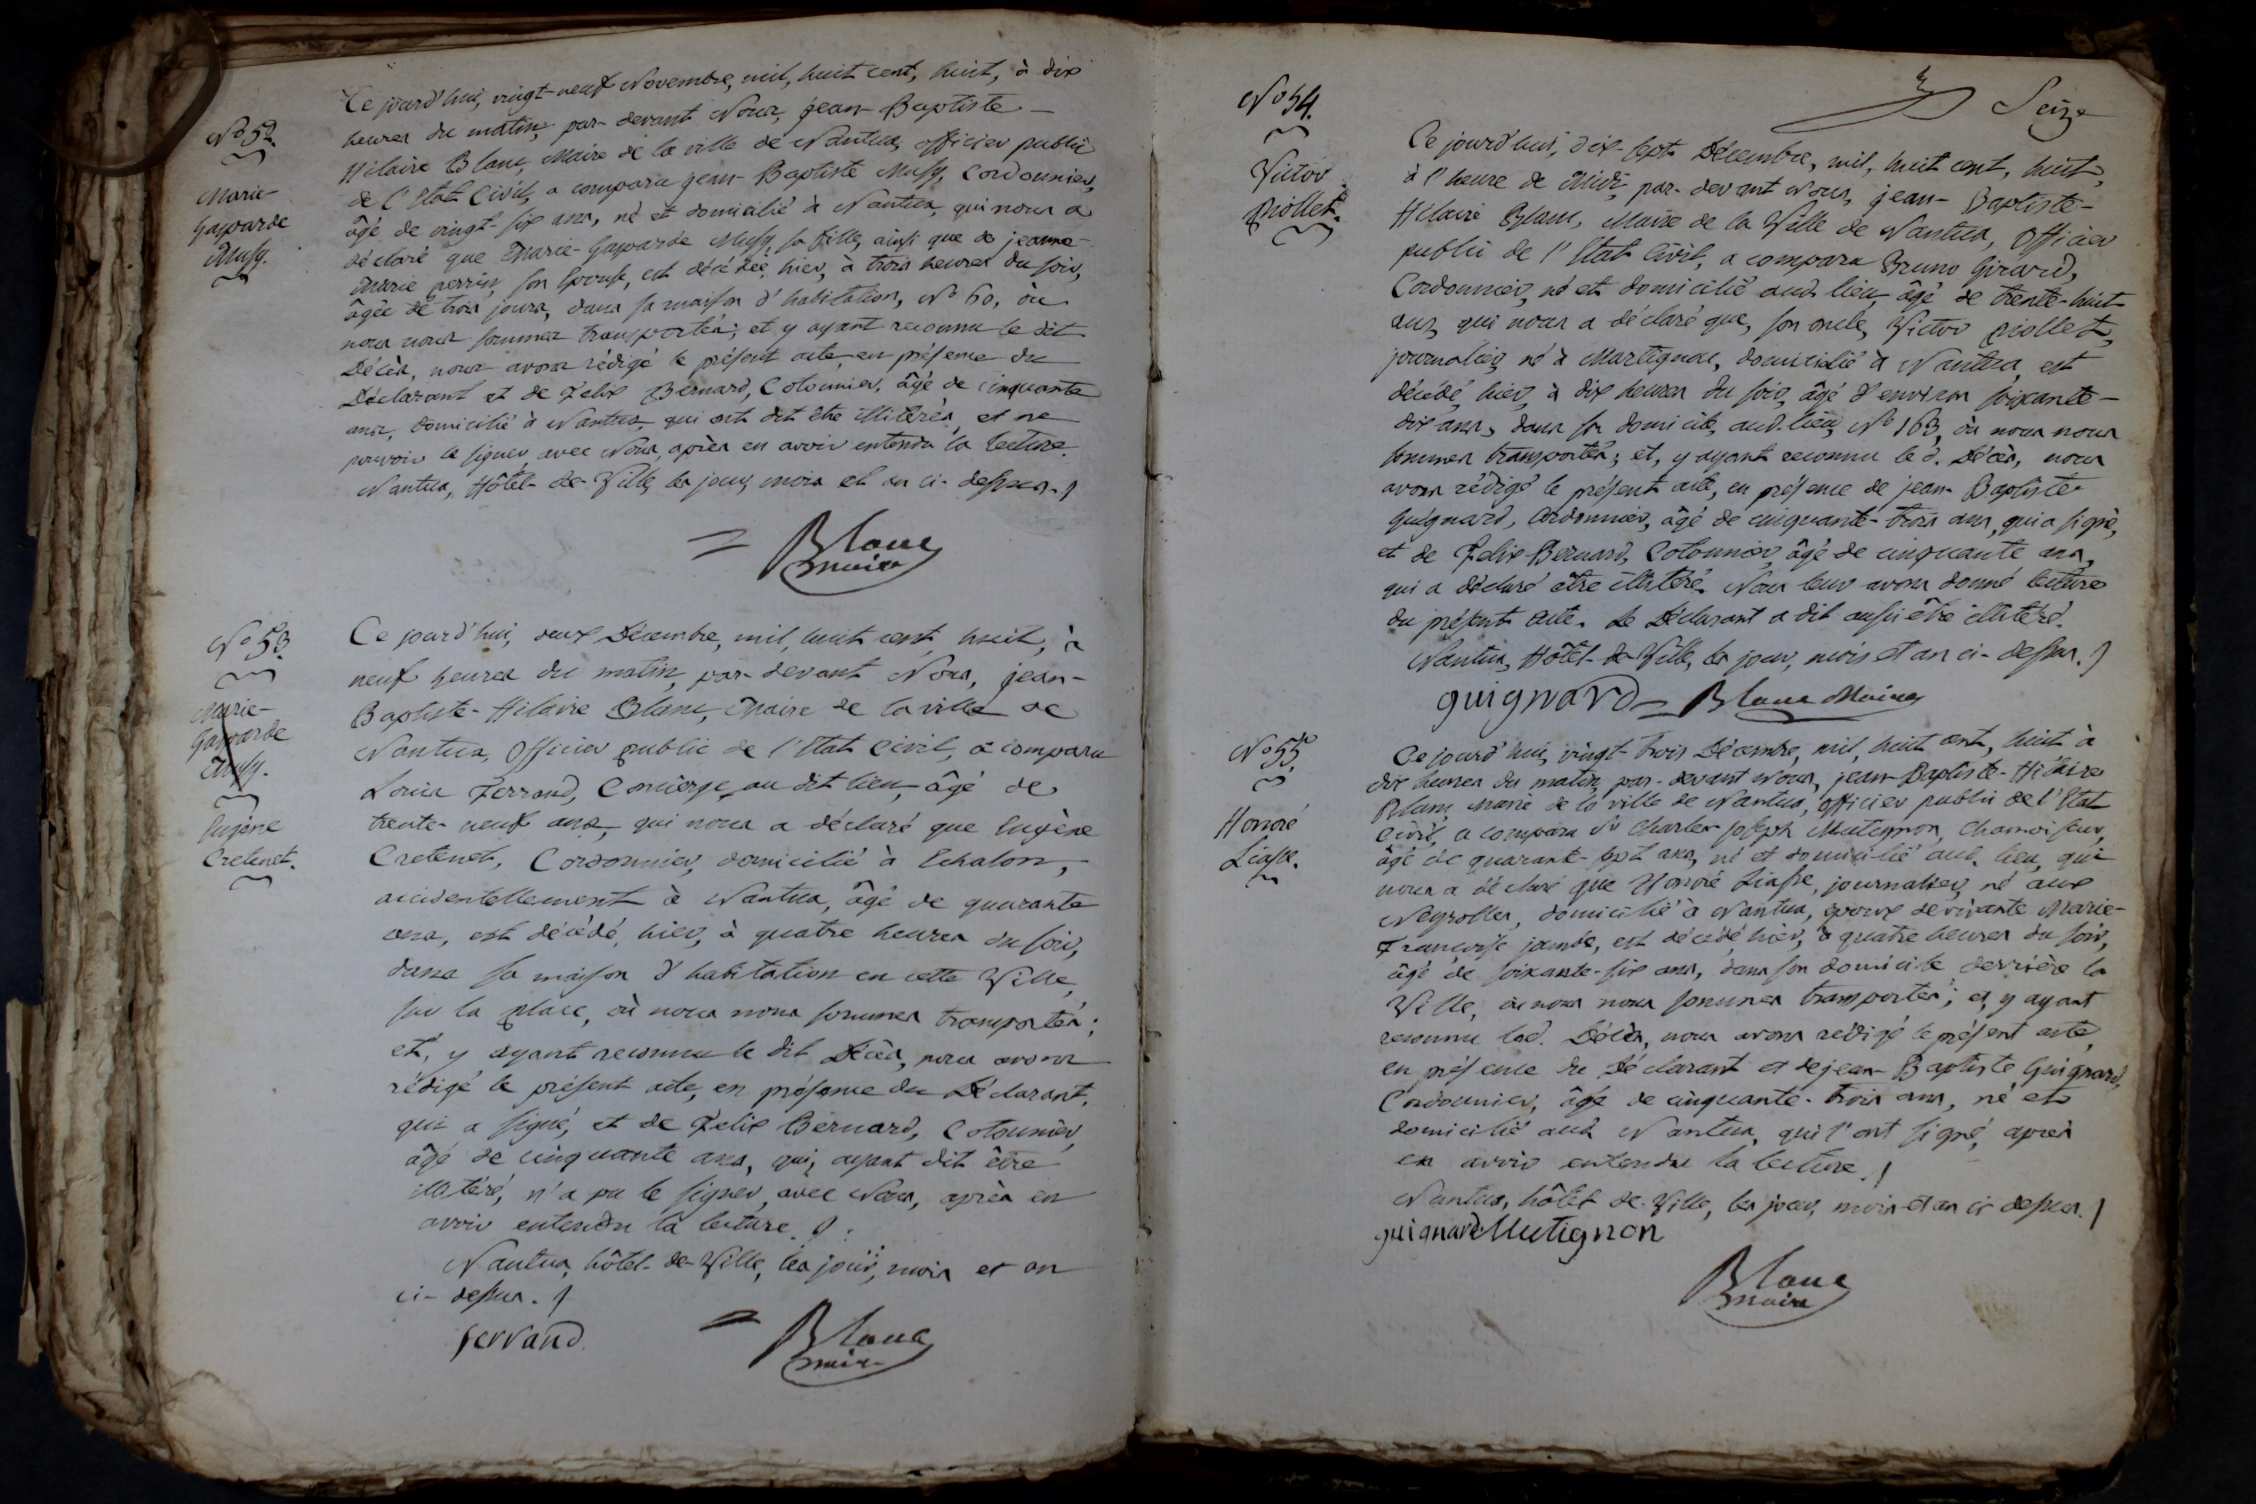 N.o 52.
Marie-
Gasparde
Mussy.
Ce jourd'hui, vingt-neuf Novembre, mil, huit cent, huit, à dix
heures du matin, par-devant Nous, jean-Baptiste-
Hilaire Blanc, Maire de la ville de Nantua, officier public
de l'Etat Civil, a comparu jean-Baptiste Mussy, Cordonnier,
âgé de vingt-six ans, né et domicilié à Nantua, qui nous a
déclaré que Marie-Gasparde Mussy, sa fille, ainsi que de jeanne-
Marie perrin, son Epouse, est décédée, hier, à trois heures du soir,
âgée de trois jours, dans sa maison d'habitation, N.o 60, où
nous nous sommes transportés; et y ayant reconnu le dit
Décès, nous avons rédigé le présent acte, en présence du
Déclarant et de Felix Bernard, Cotonnier, âgé de cinquante
ans, domicilié à Nantua, qui ont dit être illitérés, et ne
pouvoir le signer avec Nous, après en avoir entendu la lecture.
Nantua, Hôtel-de-Ville, les jour, mois et an ci-dessus.
Blanc
maire
N.o 53.
Marie-
Gasparde
Mussy.
Eugène
Cretenet.
Ce jourd'hui, deux Décembre, mil, huit cent, huit, à
neuf heures du matin, par-devant Nous, jean-
Baptiste-Hilaire Blanc, Maire de la ville de
Nantua, Officier public de l'Etat Civil, a comparu
Louis Ferrand, Concierge au dit lieu, âgé de
trente-neuf ans, qui nous a déclaré que Eugène
Cretenet, Cordonnier, domicilié à Echalon,
accidentellement à Nantua, âgé de quarante
ans, est décédé, hier, à quatre heures du soir,
dans sa maison d'habitation en cette Ville,
sur la place, où nous nous sommes transportés;
et, y ayant reconnu le dit Décès, nous avons
rédigé le présent acte, en présence du Déclarant,
qui a signé, et de Felix Bernard, Cotonnier,
âgé de cinquante ans, qui, ayant dit être
illitéré, n'a pu le signer, avec Nous, après en
avoir entendu la lecture.
Nantua, hôtel-de-Ville, les jour, mois et an
ci-dessus.
ferrand
Blanc
maire
Seize
N.o 54.
Victor
Piollet.
Ce jourd'hui, dix-sept Décembre, mil, huit cent, huit,
à l'heure de Midi, par-devant Nous, jean-Baptiste-
Hilaire Blanc, Maire de la Ville de Nantua, Officier
public de l'Etat Civil, a comparu Bruno Girard,
Cordonnier, né et domicilié aud. lieu, âgé de trente-huit
ans, qui nous a déclaré que, son oncle, Victor Piollet,
journalier, né à Martignat, domicilié à Nantua, est
décédé, hier, à dix heures du soir, âgé d'environ soixante-
dix ans, dans son domicile, aud. lieu, N.o 163, où nous nous
sommes transportés; et, y ayant reconnu le d. Décès, nous
avons rédigé le présent acte, en présence de jean-Baptiste
Guignard, Cordonnier, âgé de cinquante-trois ans, qui a signé,
et de Felix-Bernard, Cotonnier, âgé de cinquante ans,
qui a déclaré être illitéré. Nous leur avons donné lecture
du présent acte. Le Déclarant a dit aussi être illitéré.
Nantua, Hôtel-de-Ville, les jour, mois et an ci-dessus.
guignard Blanc Maire
N.o 55.
Honoré
Liasse.
Ce jourd'hui, vingt-trois Décembre, mil, huit cent, huit à
dix heures du matin, par-devant Nous, jean-Baptiste-Hilaire
Blanc, Maire de la ville de Nantua, officier public de l'Etat
Civil, a comparu Sr. Charles-Joseph Mutignon, Chamoiseur,
âgé de quarante-sept ans, né et domicilié aud. lieu, qui
nous a déclaré que Honoré Liasse, journalier, né aux
Neyrolles, domicilié à Nantua, époux de vivante Marie-
Françoise jambe, est décédé, hier, à quatre heures du soir,
âgé de soixante-six ans, dans son domicile derrière la
Ville, où nous nous sommes transportés; et, y ayant
reconnu led. Décès, nous avons rédigé le présent acte,
en présence du Déclarant et de jean-Baptiste Guignard,
Cordonnier, âgé de cinquante-trois ans, né et
domicilié aud. Nantua, qui l'ont signé, après
en avoir entendu la lecture.
Nantua, hôtel de Ville, les jour, mois et an ci-dessus.
guignard Mutignon
Blanc
maire